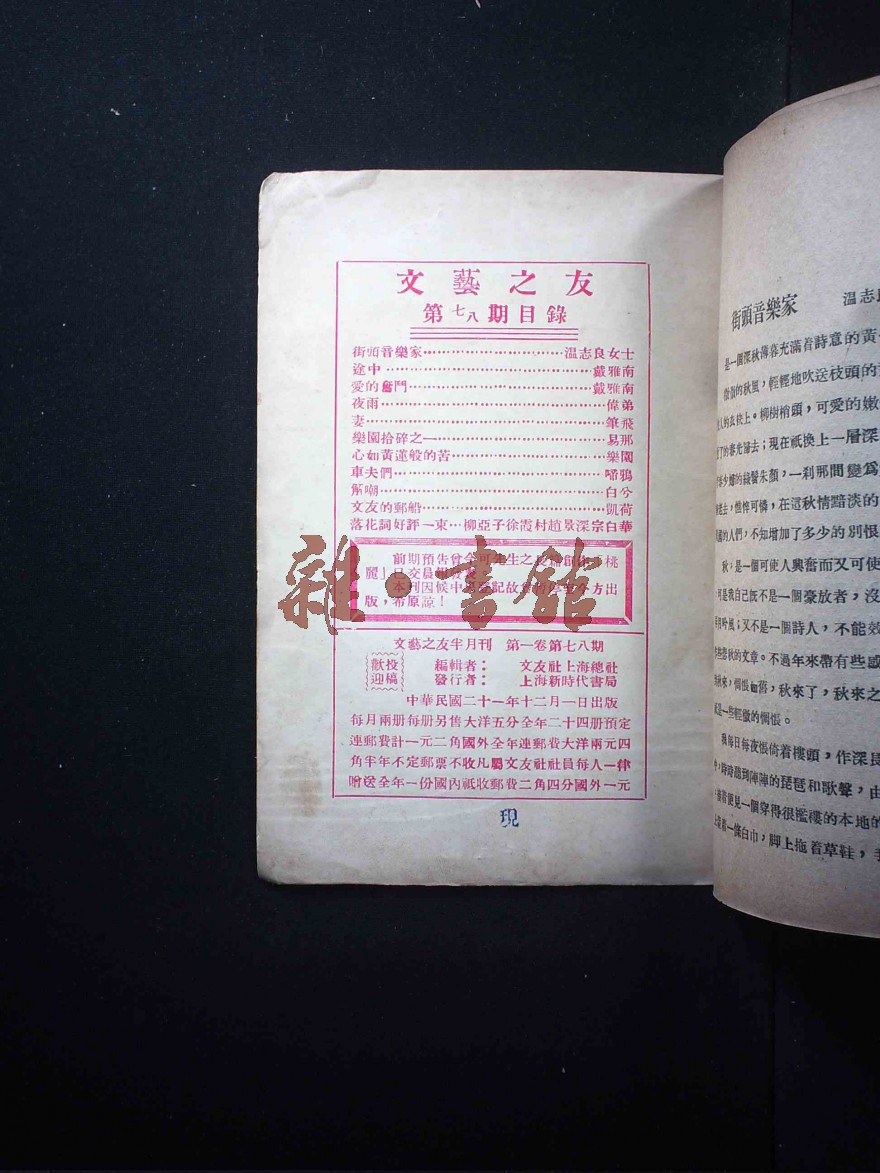 文藝之友
第七八期目錄
街頭音樂家……温志良女士
途中……戴雅南
愛的奮鬥……戴雅南
夜雨……偉弟
妻……筆飛
樂園拾碎之一……易那
心如黃蓮般的苦……樂園
車夫們……鴉
解嘲……白兮
文友的郵船……凱荷
落花詞好評一束…柳亞子徐霞村趙景深宗白華
前期預告曾今可先生之 桃
麗」已交晨報發表
本刊因候中 記故 方出
版，希原諒！
雜·書館
文藝之友半月刊 第一卷第七八期
歡投 編輯者： 文友社上海總社
迎稿 發行者： 上海新時代書局
中華民國二十一年十二月一日出版
每月兩册每册另售大洋五分全年二十四册預定
連郵費計一元二角國外全年連郵費大洋兩元四
角半年不定郵票不收凡屬文友社社員每人一律
贈送全年一份國內祇收郵費二角四分國外一元
現
街頭音樂家 温志良
是一個深秋薄暮充滿着詩意的黃
的秋風，輕輕地吹送枝頭的
人的衣袂上。柳樹梢頭，可愛的嫩
了的春光歸去；現在祇換上一層深
少婦的綠鬢朱顏，一刹那間變爲
去，憔悴可憐，在這秋情黯淡的
的人們，不知增加了多少的別恨
秋，是一個可使人興奮而又可使
可是我自己既不是一個豪放者，沒
吟風；又不是一個詩人，不能效
些悲秋的文章。不過年來帶有些感
秋來，惆悵如舊，秋來了，秋來之
是一些輕微的惆悵。
我每日每夜悵倚着樓頭，作深長
時時聽到陣陣的琵琶和歌聲，由
便見一個穿得很襤褸的本地的
一條白巾，脚上拖着草鞋，手